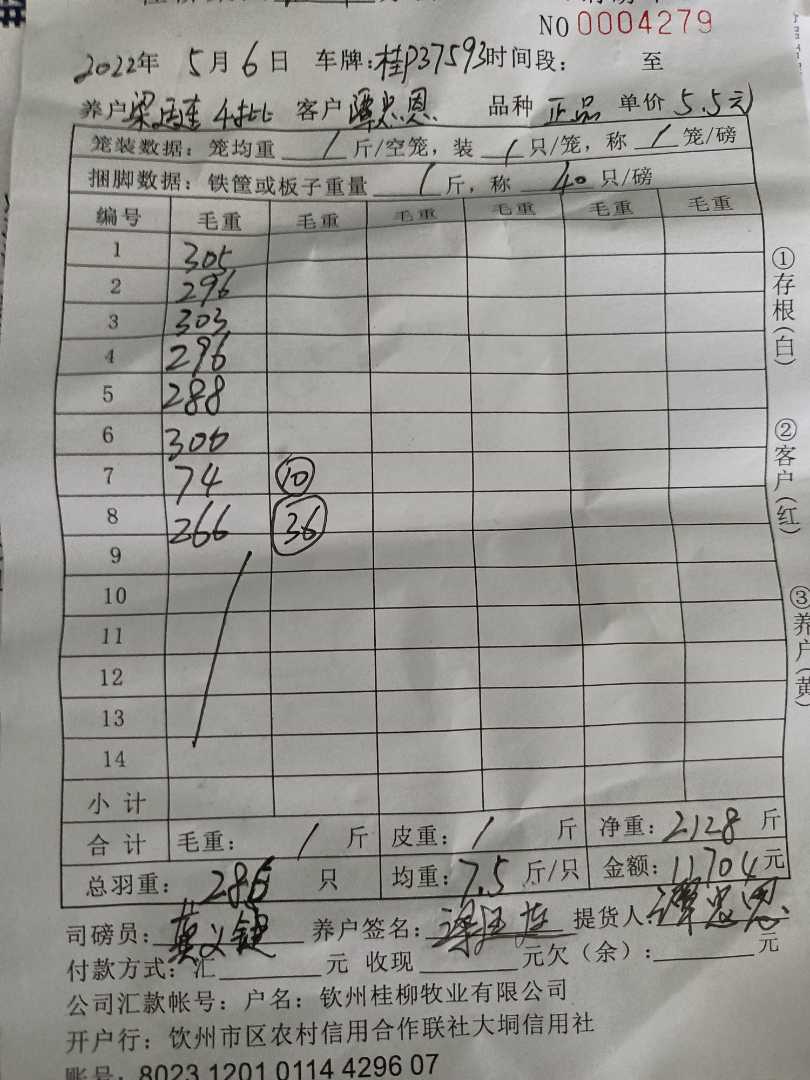 NO 0004279
2022年 5月6日 车牌:桂P37593时间段: 至
养户 客户 谭忠恩 品种 正品 单价 5.5元
笼装数据: 笼均重 / 斤/空笼, 装 / 只/笼, 称 / 笼/磅
捆脚数据: 铁筐或板子重量 / 斤, 称 40 只/磅
编号 毛重 毛重 毛重 毛重 毛重 毛重
1 305
2 296
3 303
4 296
5 288
6 300
7 74 10
8 266 36
9
10
11
12
13
14
小 计
合 计 毛重: / 斤 皮重: / 斤 净重: 2128 斤
总羽重: 286 只 均重: 7.5 斤/只 金额: 11704 元
司磅员: 养户签名: 提货人: 谭忠恩
付款方式: 汇 元 收现 元欠(余): 元
公司汇款帐号: 户名: 钦州桂柳牧业有限公司
开户行: 钦州市区农村信用合作联社大垌信用社
账号: 8023 1201 0114 4296 07
①存根(白)
②客户(红)
③养户(黄)